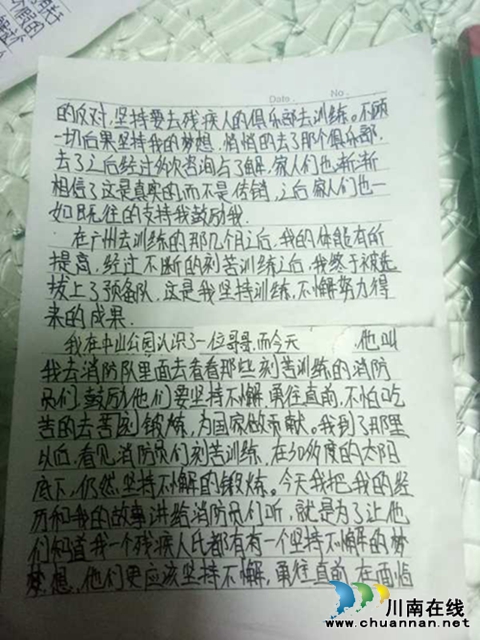 Date. No.
的反对,坚持要去残疾人的俱乐部去训练。不顾
一切后果坚持我的梦想,悄悄的去了那个俱乐部,
去了之后经过多次咨询与了解,家人们也渐渐
相信了这是真实的,而不是传销,之后家人们也一
如既往的支持我鼓励我.
在广州去训练的那几个月之后,我的体能有所
提高,经过不断的刻苦训练之后,我终于被选
拔上了预备队,这是我坚持训练,不懈努力得
来的成果.
我在中山公园认识了一位哥哥,而今天 他叫
我去消防队里面去看看那些刻苦训练的消防
员们,鼓励他们要坚持不懈,勇往直前,不怕吃
苦的去苦刻锻炼,为国家做贡献。我到了那里
以后,看见消防员们刻苦训练,在30多度的太阳
底下,仍然坚持不懈的锻炼。今天我把我的经
历和我的故事讲给消防员们听,就是为了让他
们知道我一个残疾人民都有有一个坚持不懈的梦
梦想,他们更应该坚持不懈,勇往直前,在面临
川南在线
www.chuannan.net